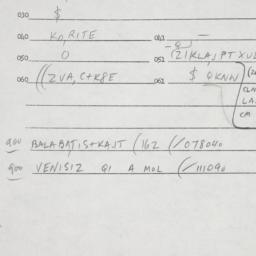 030 $
040 KP, RITE 041 —
050 0 051 (21KLA, PT XUL
060 ((ZVA, C+K8E 061 $ 0KNN
CLA
LA
CM
900 BALABATIS+KAJT (162 (/078040
900 VENISIZ Q1 A MOL (/111090